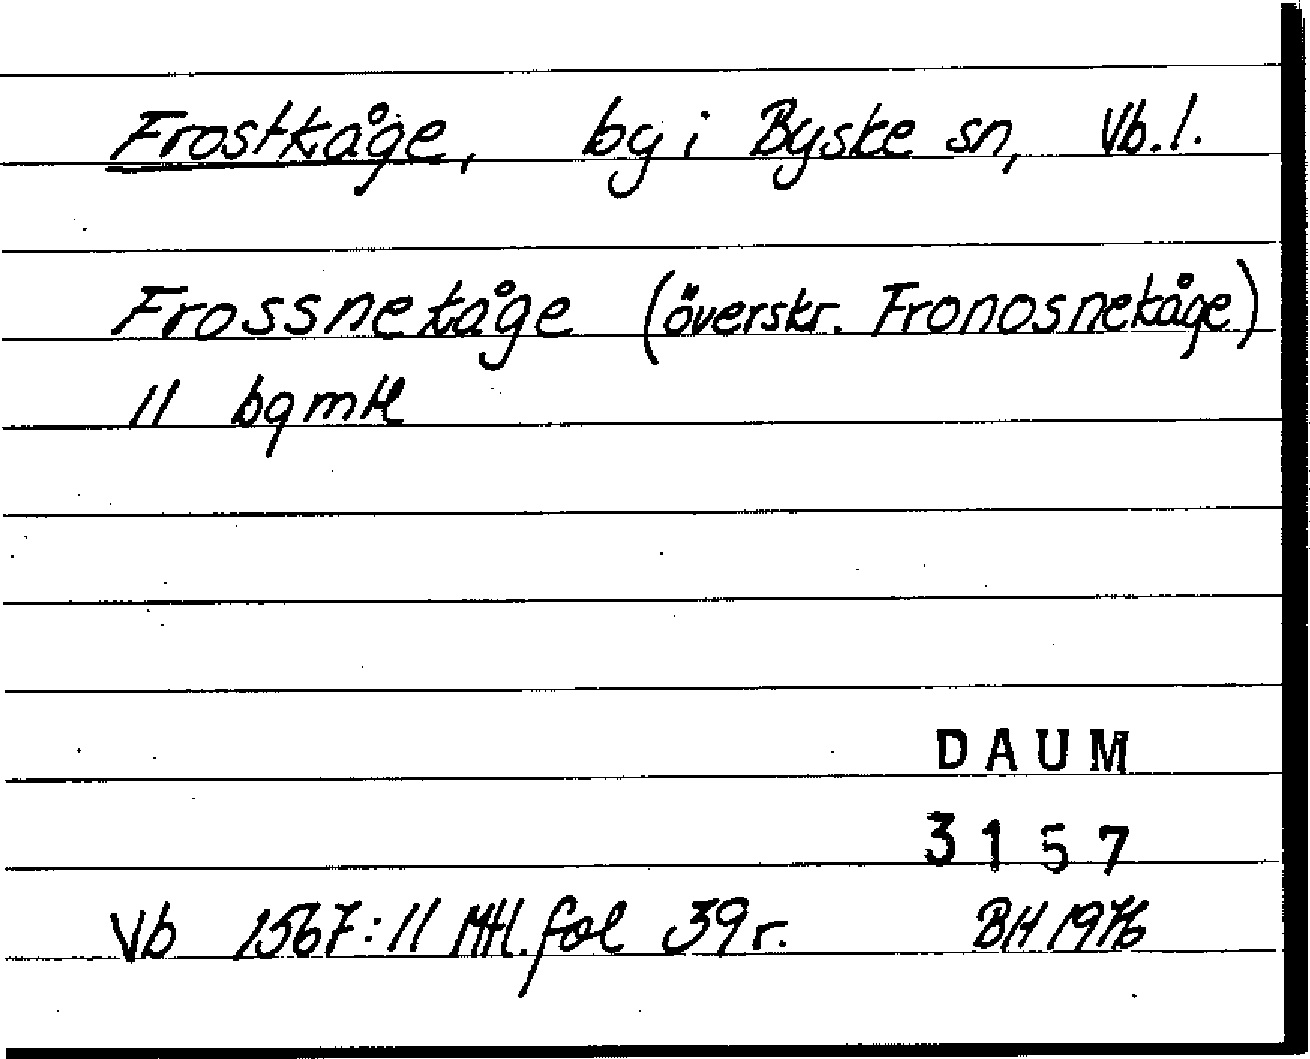 Frostkåge, by i Byske sn, Vb.l.
Frossnekåge (överskr. Fronosnekåge)
11 bqmtl
DAUM
3157
Vb 1567:11 Mtl. fol 39 r. BH 1976